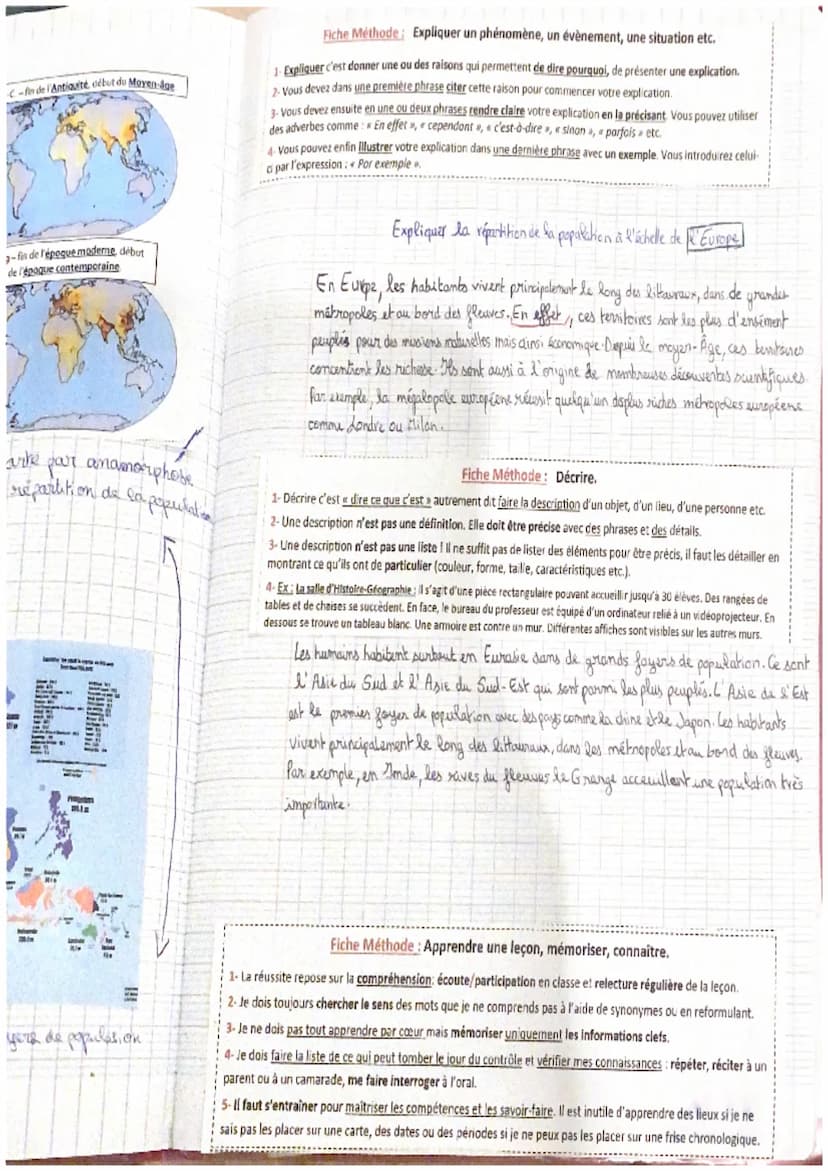 C - fin de l'Antiquité, début du Moyen-âge
- fin de l'époque moderne, début
de l'époque contemporaine
arte par anamorphose
répartition de la population
PHILIPPINES
yers de population
Fiche Méthode : Expliquer un phénomène, un évènement, une situation etc.
1- Expliquer c'est donner une ou des raisons qui permettent de dire pourquoi, de présenter une explication.
2- Vous devez dans une première phrase citer cette raison pour commencer votre explication.
3- Vous devez ensuite en une ou deux phrases rendre claire votre explication en la précisant. Vous pouvez utiliser
des adverbes comme : « En effet », « cependant », « c'est-à-dire », « sinon », « parfois » etc.
4- Vous pouvez enfin illustrer votre explication dans une dernière phrase avec un exemple. Vous introduirez celui-
ci par l'expression : « Por exemple ».
Expliquer la répartition de la population à l'échelle de l'Europe
En Europe, les habitants vivent principalement le long des littauraux, dans de grandes
métropoles et au bord des fleuves. En effet, ces territoires sont les plus d'ensément
peuplés pour des raisons naturelles mais ainsi économique. Depuis le moyen-Âge, ces territoires
concentrent les richesse. Ils sont aussi à l'origine de nombreuses découvertes scientifiques.
Par exemple, la mégalopole européene réunit quelqu'un des plus riches métropoles européene
comme Londre ou Milan.
Fiche Méthode : Décrire.
1- Décrire c'est « dire ce que c'est » autrement dit faire la description d'un objet, d'un lieu, d'une personne etc.
2- Une description n'est pas une définition. Elle doit être précise avec des phrases et des détails.
3- Une description n'est pas une liste ! Il ne suffit pas de lister des éléments pour être précis, il faut les détailler en
montrant ce qu'ils ont de particulier (couleur, forme, taille, caractéristiques etc.).
4- Ex : La salle d'Histoire-Géographie : il s'agit d'une pièce rectangulaire pouvant accueillir jusqu'à 30 élèves. Des rangées de
tables et de chaises se succèdent. En face, le bureau du professeur est équipé d'un ordinateur relié à un vidéoprojecteur. En
dessous se trouve un tableau blanc. Une armoire est contre un mur. Différentes affiches sont visibles sur les autres murs.
Les humains habitent surtout en Eurasie dans de grands foyers de population. Ce sont
l'Asie du Sud et l'Asie du Sud-Est qui sont parmi les plus peuplés. L'Asie de l'Est
est le premier foyer de population avec des pays comme la chine et le Japon. Les habitants
vivent principalement le long des littauraux, dans les métropoles et au bord des fleuves.
Par exemple, en Inde, les raves du fleuves le Grange acceuillent une population très
importante.
Fiche Méthode : Apprendre une leçon, mémoriser, connaître.
1- La réussite repose sur la compréhension: écoute/participation en classe et relecture régulière de la leçon.
2- Je dois toujours chercher le sens des mots que je ne comprends pas à l'aide de synonymes ou en reformulant.
3- Je ne dois pas tout apprendre par cœur mais mémoriser uniquement les informations clefs.
4- Je dois faire la liste de ce qui peut tomber le jour du contrôle et vérifier mes connaissances : répéter, réciter à un
parent ou à un camarade, me faire interroger à l'oral.
5- Il faut s'entraîner pour maîtriser les compétences et les savoir-faire. Il est inutile d'apprendre des lieux si je ne
sais pas les placer sur une carte, des dates ou des périodes si je ne peux pas les placer sur une frise chronologique.